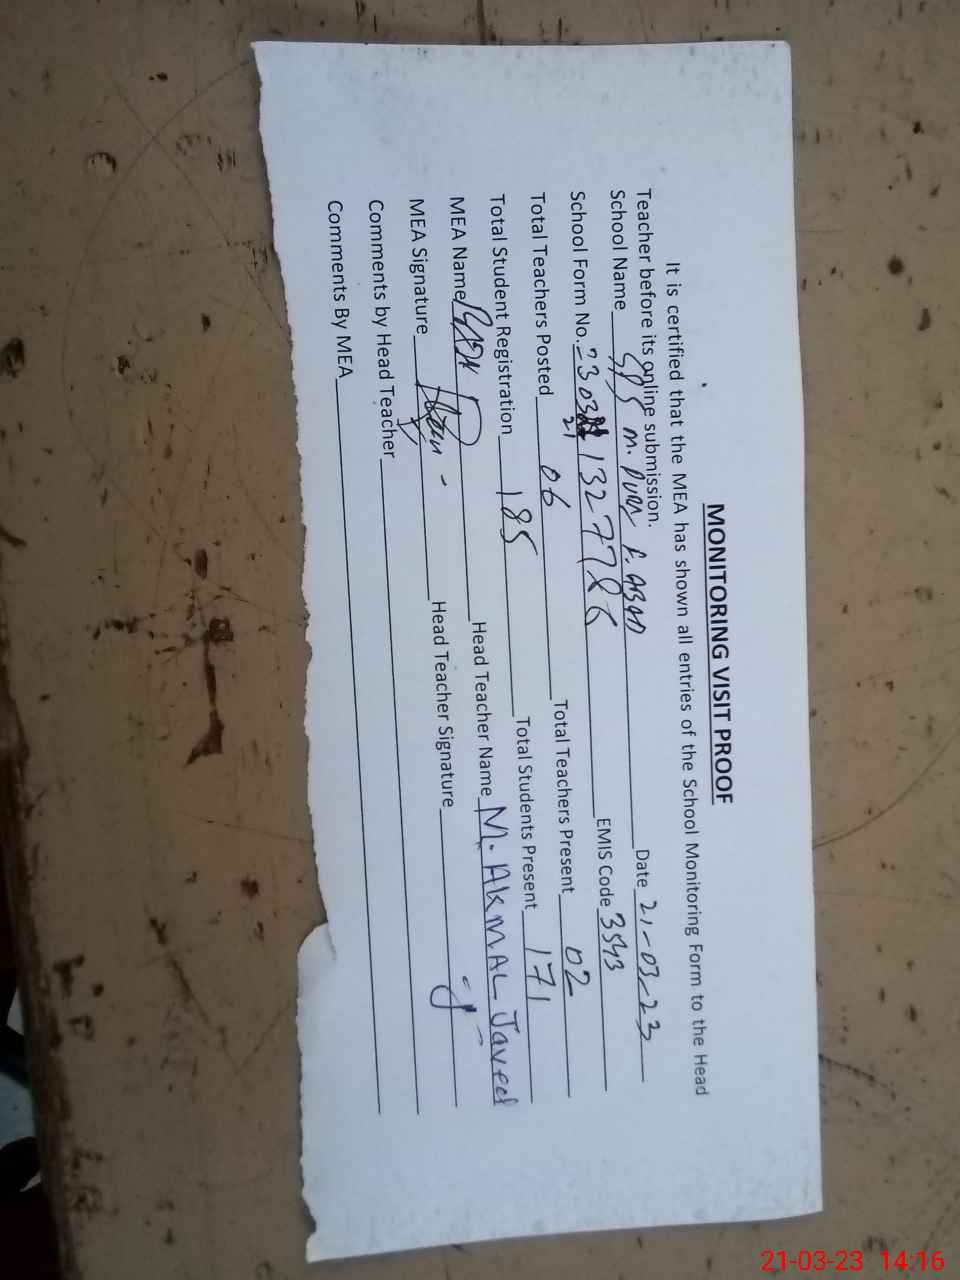 MONITORING VISIT PROOF
It is certified that the MEA has shown all entries of the School Monitoring Form to the Head
Teacher before its online submission.
School Name GPS M. F. ABAD Date 21-03-23
School Form No. 21 1327786 EMIS Code 3543
Total Teachers Posted 06 Total Teachers Present 02
Total Student Registration 185 Total Students Present 171
MEA Name Head Teacher Name M. AKMAL Javeed
MEA Signature Head Teacher Signature
Comments by Head Teacher
Comments By MEA
21-03-23 14:16